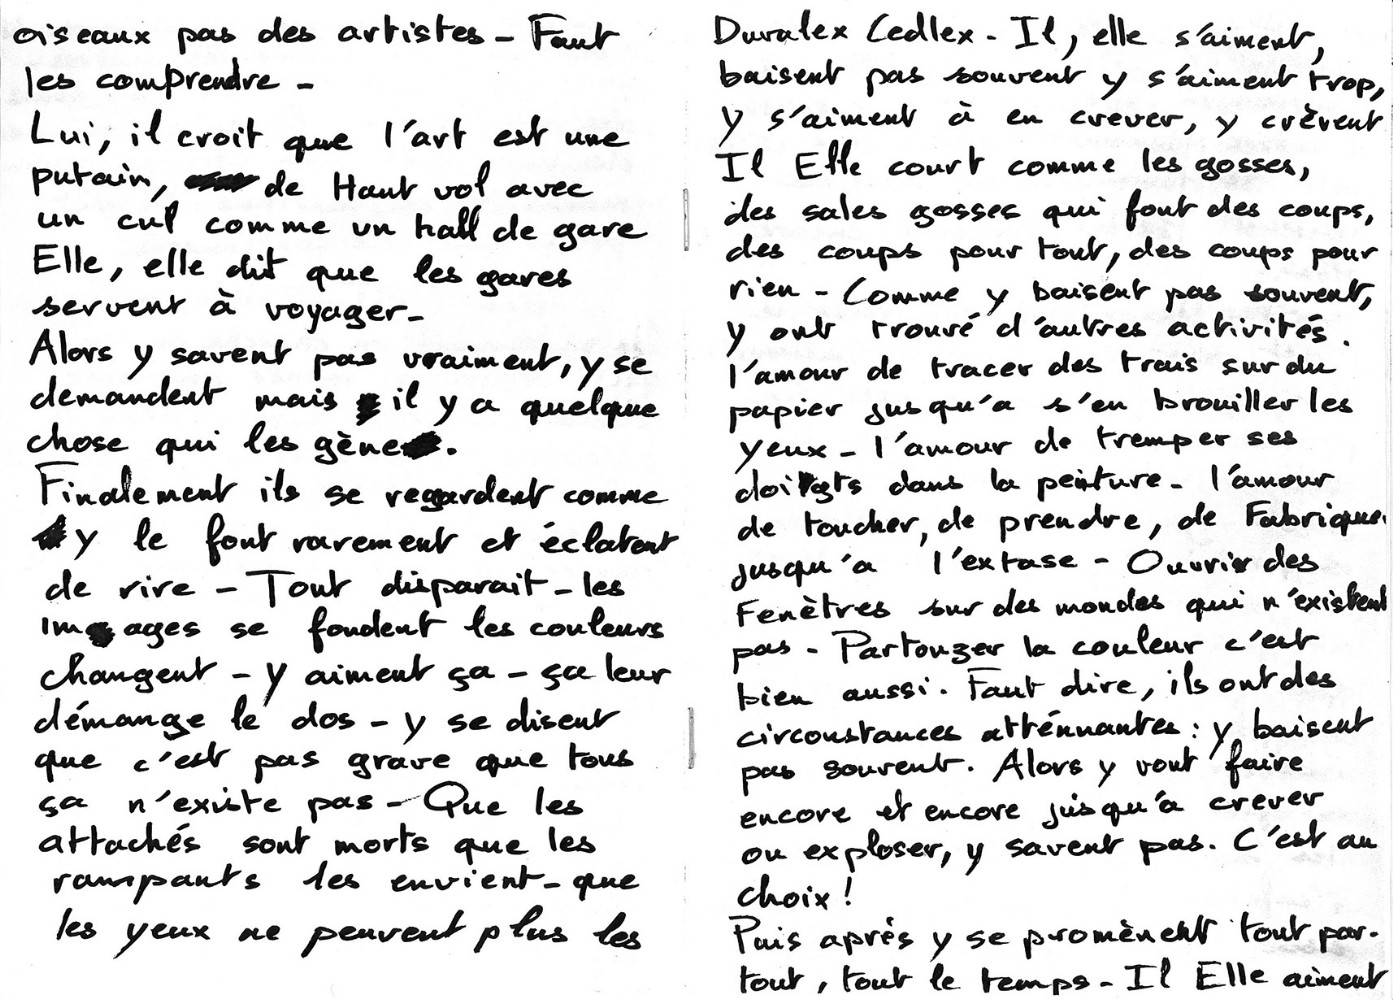 oiseaux pas des artistes - Faut
les comprendre -
Lui, il croit que l'art est une
putain, de Haut vol avec
un cul comme un hall de gare
Elle, elle dit que les gares
servent à voyager -
Alors y savent pas vraiment, y se
demandent mais il y a quelque
chose qui les gène.
Finalement ils se regardent comme
y le font rarement et éclatent
de rire - Tout disparait - les
images se fondent les couleurs
changent - y aiment ça - ça leur
démange le dos - y se disent
que c'est pas grave que tous
ça n'existe pas - Que les
attachés sont morts que les
rampants les envient - que
les yeux ne peuvent plus les
Duralex Cedlex - Il, elle s'aiment,
baisent pas souvent y s'aiment trop,
y s'aiment à en crever, y crèvent
Il Elle court comme les gosses,
des sales gosses qui font des coups,
des coups pour tout, des coups pour
rien - Comme y baisent pas souvent,
y ont trouvé d'autres activités.
l'amour de tracer des trais sur du
papier jusqu'a s'en brouiller les
yeux - l'amour de tremper ses
doigts dans la peinture - l'amour
de toucher, de prendre, de Fabriquer
jusqu'a l'extase - Ouvrir des
Fenêtres sur des mondes qui n'existent
pas - Partouzer la couleur c'est
bien aussi. Faut dire, ils ont des
circonstances atténnuantes : y baisent
pas souvent. Alors y vont faire
encore et encore jusqu'a crever
ou exploser, y savent pas. C'est au
choix !
Puis après y se promènent tout par-
tout, tout le temps - Il Elle aiment